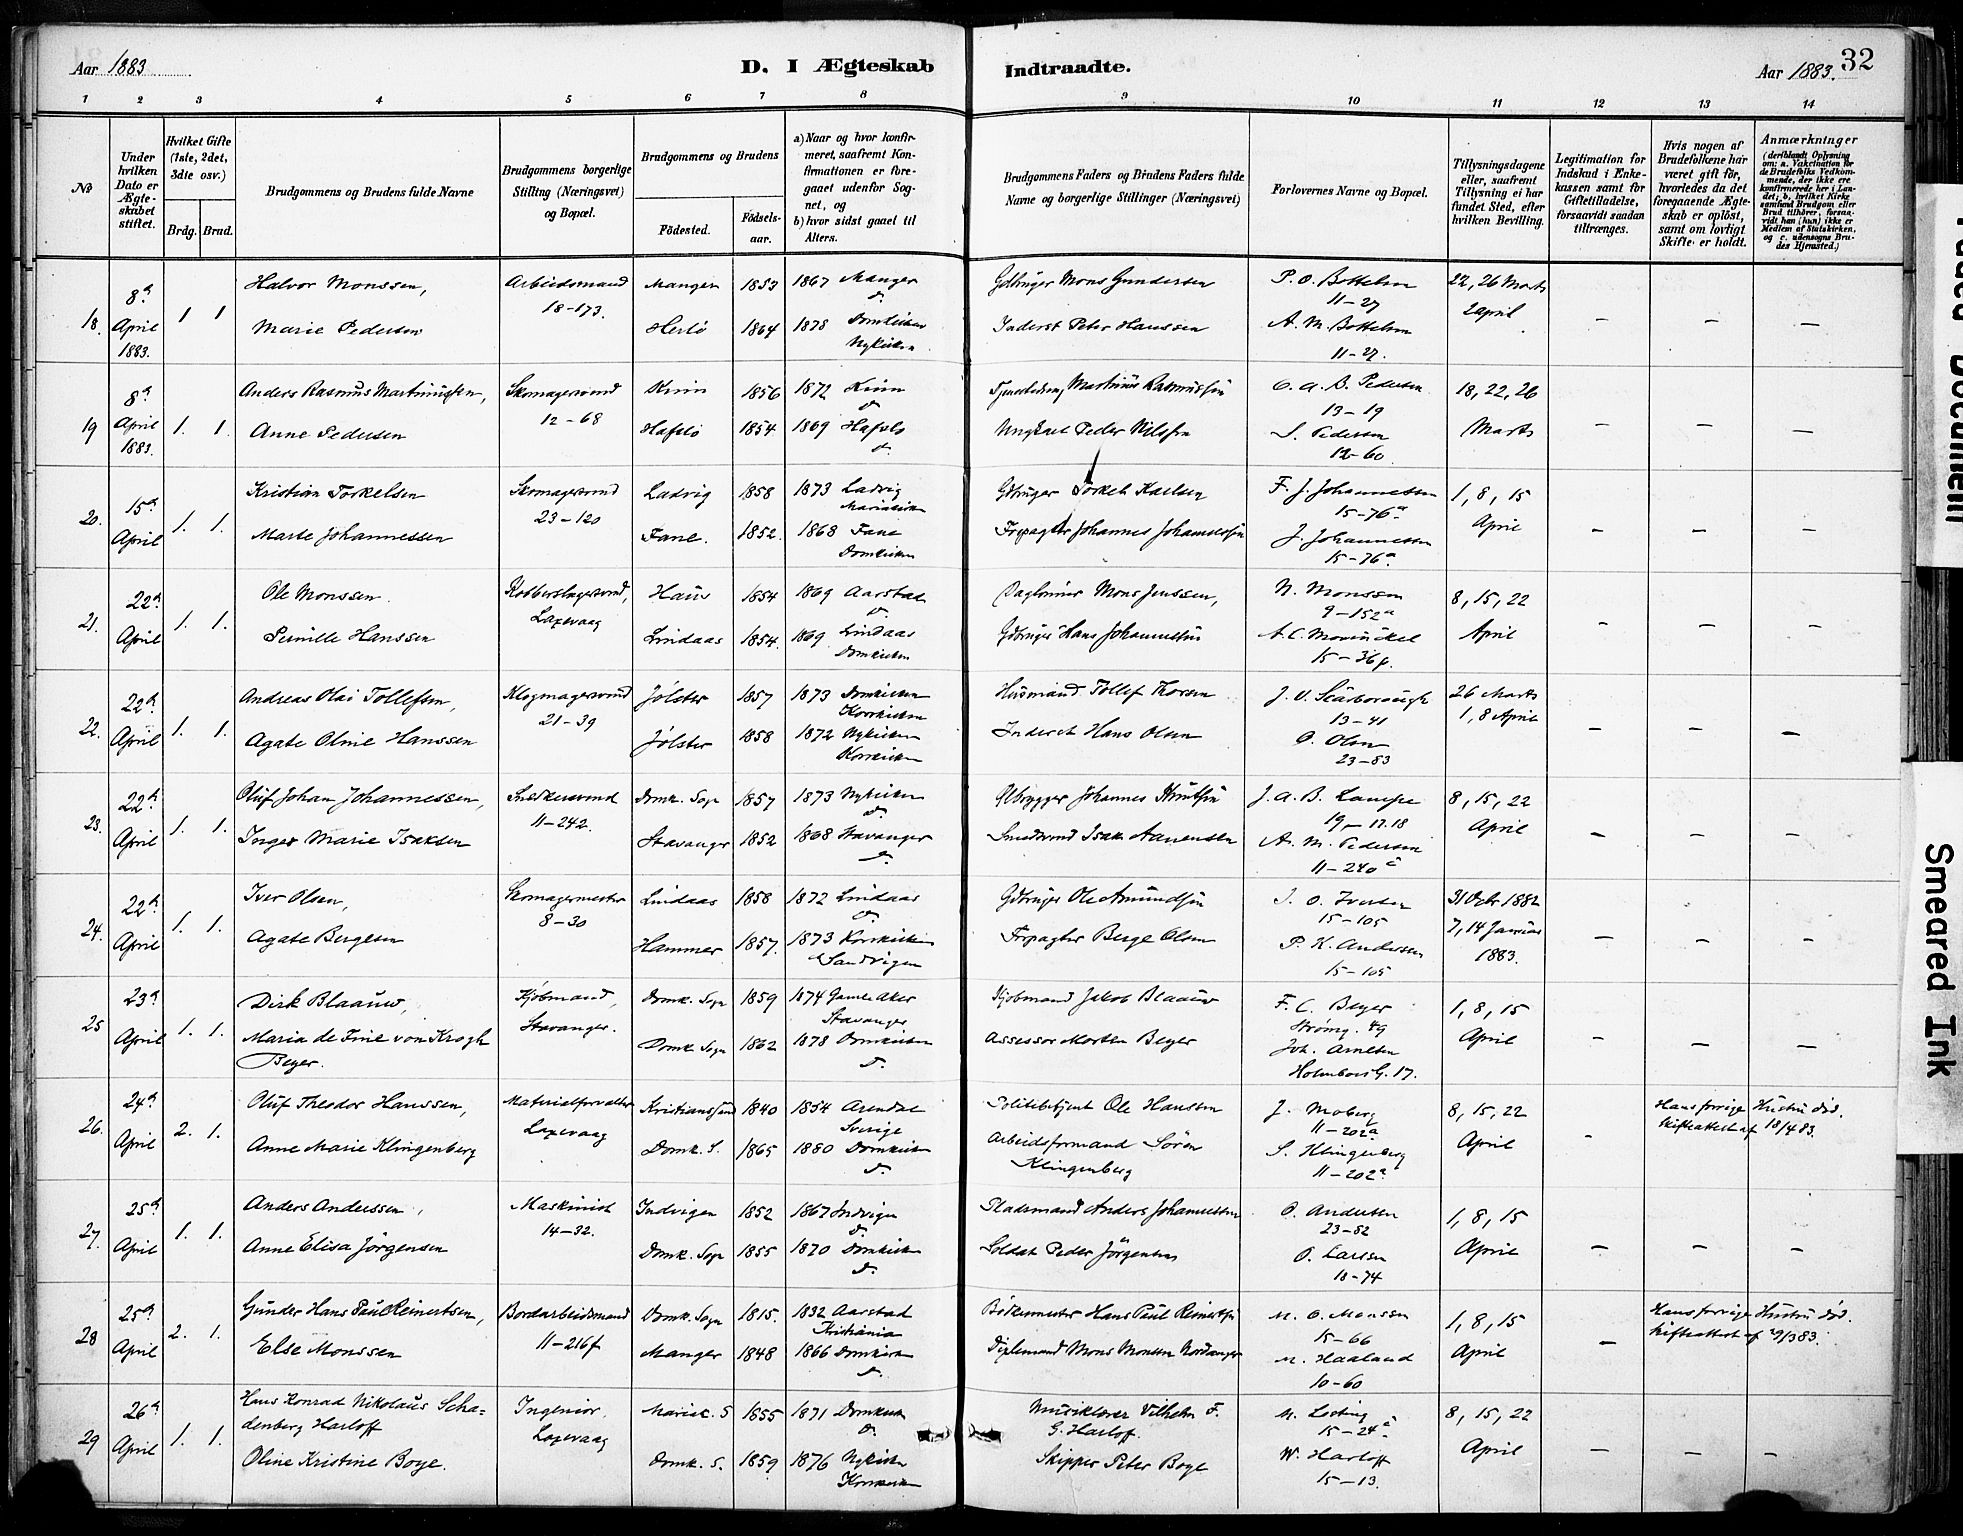 Aar 1883
D. I Ægteskab
Indtraadte.
Aar 1883.
32
1 2 3 4 5 6 7 8 9 10 11 12 13 14
No
Under hvilken Dato er Ægteskabet stiftet.
Hvilket Gifte (1ste, 2det, 3die osv.)
Brdg. Brud.
Brudgommens og Brudens fulde Navne
Brudgommens borgerlige Stilling (Næringsvei) og Bopæl.
Brudgommens og Brudens
Fødested.
Fødselsaar.
a) Naar og hvor konfirmeret, saafremt Konfirmationen er foregaaet udenfor Sognet, og
b) hvor sidst gaaet til Alters.
Brudgommens Faders og Brudens Faders fulde Navne og borgerlige Stillinger (Næringsvei)
Forlovernes Navne og Bopæl.
Tillysningsdagene eller, saafremt Tillysning ei har fundet Sted, efter hvilken Bevilling.
Legitimation for Indskud i Enkekassen samt for Giftetilladelse, forsaavidt saadan tiltrænges.
Hvis nogen af Brudefolkene har været gift før, hvorledes da det foregaaende Ægteskab er opløst, samt om lovligt Skifte er holdt.
Anmærkninger
(deriblandt Oplysning om: a. Vakcination for de Brudefolks Vedkommende, der ikke ere konfirmerede her i Landet; b. hvilket Kirkesamfund Brudgom eller Brud tilhører, forsaavidt han (hun) ikke er Medlem af Statskirken, og c. udensogns Brudes Hjemsted.)
18. 8de April 1883. 1 1
Halvor Monssen,
Marie Pedersen
Arbeidsmand
18-173.
Manger 1853 1867 Manger
d.
Herlö 1864 1878 Domkirken
Nykirken
Gdbruger Mons Gundersen
Inderst Peter Hanssen
P. O. Bottelsen
11-27
A. M. Bottelsen
11-27.
22, 26 Marts
2 april
19 8de April 1883. 1. 1.
Anders Rasmus Martinussen,
Anne Pedersen
Skomagersvend
12-68
Kinn 1856 1872 Kinn
d.
Hafslo 1854 1869 Hafslo
d.
Martinus Rasmussen
Ungkarl Peder Nilssen
O. A. B. Pedersen
13-19
S. Pedersen
12-60
18, 22, 26
Marts
20. 15de April 1. 1.
Kristian Torkelsen
Marte Johannessen
Skomagersvend
23-120
Ladvig 1858 1873 Ladvig
Mariakirken
Fane. 1852. 1868 Fane
Domkirken
Gdbruger Torkel Karlsen
Forpagter Johannes Johannessen
F. J. Johannessen
15-76a
J. Johannessen
15-76a
1, 8, 15
April
21. 22de April 1. 1.
Ole Monssen.
Pernille Hanssen
Kobberslagersvend,
Laxevaag
Haus 1854 1869 Aarstad
d.
Lindaas 1854. 1869 Lindaas
Domkirken
Daglønner Mons Jenssen,
Gdbruger Hans Johannessen
N. Monssen
9-152a
A. C. Mowinckel
15-36f.
8, 15, 22
April
22. 22de April 1. 1.
Andreas Olai Tollefsen,
Agate Oline Hanssen
Klogmagersvend
21-39
Jølster 1857 1873 Domkirken
Korskirken
Jølster 1858 1872 Nykirken
Korskirken
Husmand Tollef Thorsen
Inderst Hans Olsen
J. V. Scarborough
13-41
O. Olsen
23-83
26 Marts
1, 8 April
23. 22de April 1. 1.
Oluf Johan Johannessen,
Inger Marie Isaksen
Snedkersvend
11-242.
Domk. Sogn 1857 1873 Nykirken
d.
Stavanger 1852 1868 Stavanger
d.
Ølbrygger Johannes Knutsen
Smedsvend Isak Aanensen
J. A. B. Lampe
19-17.18
A. M. Pedersen
11-240a
8, 15, 22
April
24. 22de April 1. 1.
Iver Olsen,
Agate Bergesen
Skomagermester
8-30
Lindaas 1858 1872 Lindaas
d.
Hammer 1857. 1873 Korskirken
Sandvigen
Gdbruger Ole Amundsen
Forpagter Berge Olsen
I. O. Iversen
15-105
P. K. Andersen
15-105
31 Octr 1882
7, 14 Januar
1883.
25 23de April 1. 1.
Dirk Blaauw,
Maria de Fine von Krogh
Beyer.
Kjøbmand,
Stavanger.
Domk. Sogn 1859 1874 Gamle Aker
Stavanger
Domk. Sogn 1862 1878 Domkirken
d.
Kjøbmand Jakob Blaauw
Assessor Morten Beyer
F. C. Beyer
Strømg. 49
Joh. Arnesen
Holmboes G. 17.
1, 8, 15
April
26. 24de April 2. 1.
Oluf Theodor Hanssen,
Anne Marie Klingenberg
Materialforvalter
Laxevaag
Kristianssund 1840 1854 Arendal
Sverige
Domk. S. 1865 1880 Domkirken
d.
Politibetjent Ole Hanssen
Arbeidsformand Søren
Klingenberg
J. Moberg
11-202a
S. Klingenberg
11-202a
8, 15, 22
April
Hans forrige Hustru død.
Skifteattest af 18/4 83.
27. 25de April 1. 1.
Anders Andersen,
Anne Elisa Jørgensen
Maskinist
14-32.
Indvigen 1852 1867 Indvigen
d.
Domk. Sogn 1855 1870 Domkirken
d.
Pladsmand Anders Johannessen
Soldat Peder Jørgensen
O. Andersen
23-82
O. Larsen
18-74
1, 8, 15
April
28 25de April 2. 1.
Gunder Hans Paul Reinertsen,
Else Monssen
Bordarbeidsmand
11-216f
Domk. Sogn 1815. 1832 Aarstad
Kristiania
Manger 1848 1866 Domkirken
d.
Bøkermester Hans Paul Reinertsen
Mons Monsen Nordanger
M. O. Monssen
15-66
M. Haaland
10-60
1, 8, 15
April
Hans forrige Hustru død.
Skifteattest af 29/3 83.
29 26de April 1. 1.
Hans Konrad Nikolaus Scha=
denberg Harloff
Oline Kristine Boye.
Ingeniør,
Laxevaag
Mariak. S 1855 1871 Domkirken
d.
Domk. S. 1859 1876 Nykirken
Korskirken
Musiklærer Vilhelm F.
G. Harloff.
Skipper Peter Boye
M. Leding
15-24a
W. Harloff
15-13.
8, 15, 22
April
Faded Document
Smeared Ink